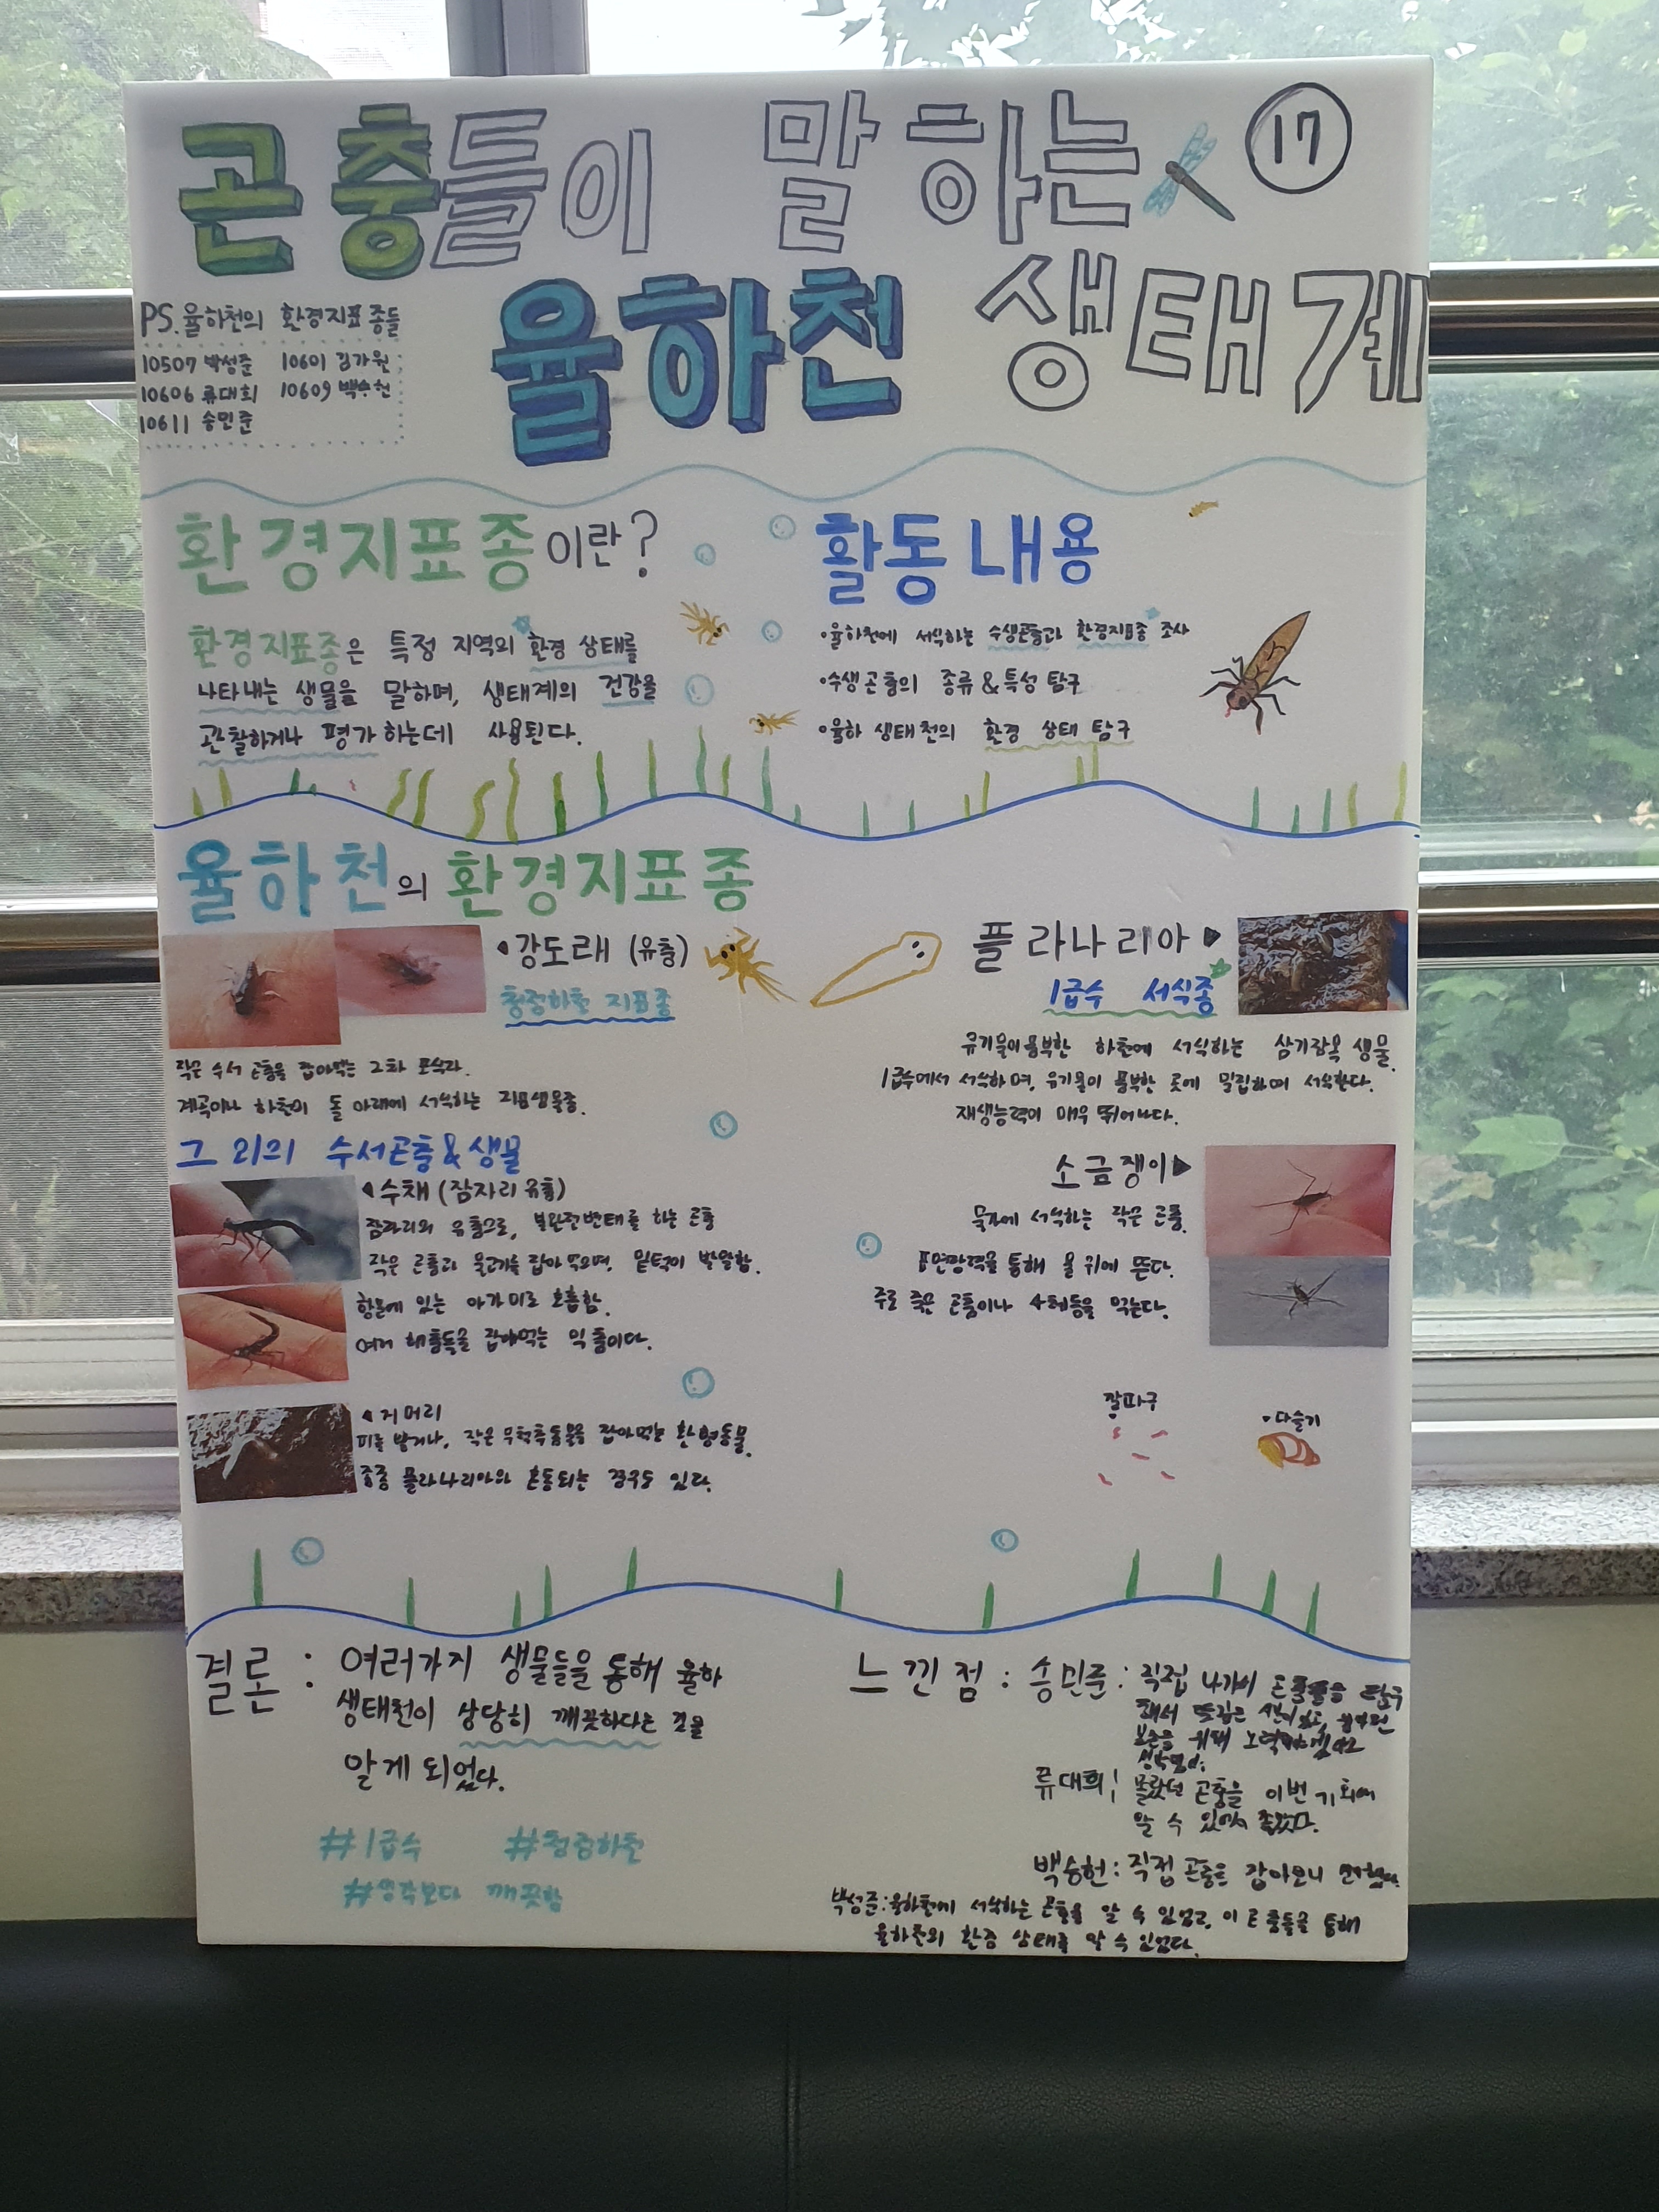 곤충들이 말하는
17
율하천 생태계
PS. 율하천의 환경지표종들
10507 박성준 10601 김가원
10606 류대희 10609 백승헌
10611 송민준
환경지표종이란?
환경지표종은 특정 지역의 환경 상태를
나타내는 생물을 말하며, 생태계의 건강을
관찰하거나 평가하는데 사용된다.
활동 내용
•율하천에 서식하는 수생곤충과 환경지표종 조사
•수생곤충의 종류&특성 탐구
•율하 생태천의 환경 상태 탐구
율하천의 환경지표종
◂강도래 (유충)
청정하천 지표종
작은 수서 곤충을 잡아먹는 2차 포식자.
계곡이나 하천이 돌 아래에 서식하는 지표생물종.
플라나리아▸
1급수 서식종
유기물이 풍부한 하천에 서식하는 삼기장목 생물.
1급수에서 서식하며, 유기물이 풍부한 곳에 밀집하며 서식한다.
재생능력이 매우 뛰어나다.
그 외의 수서곤충&생물
◂수채 (잠자리 유충)
잠자리의 유충으로, 불완전변태를 하는 곤충
작은 곤충과 물고기를 잡아먹으며, 밑턱이 발달함.
항문에 있는 아가미로 호흡함.
여러 해충들을 잡아먹는 익충이다.
◂거머리
피를 빨거나, 작은 무척추동물을 잡아먹는 환형동물.
종종 플라나리아와 혼동되는 경우도 있다.
소금쟁이▸
묵가에 서식하는 작은 곤충.
표면장력을 통해 물 위에 뜬다.
주로 죽은 곤충이나 사체등을 먹는다.
깔따구
•다슬기
결론 : 여러가지 생물들을 통해 율하
생태천이 상당히 깨끗하다는 것을
알게 되었다.
#1급수 #청정하천
#생각보다 깨끗함
느낀점 : 송민준 : 직접 나가서 곤충들을 탐구
해서
보존을 위해
류대희 : 몰랐던 곤충을 이번 기회에
알 수 있어서 좋았다.
백승헌 : 직접 곤충을 잡아보니
박성준 : 율하천에 서식하는 곤충을 알 수 있었고, 이 곤충들을 통해
율하천의 환경 상태를 알 수 있었다.